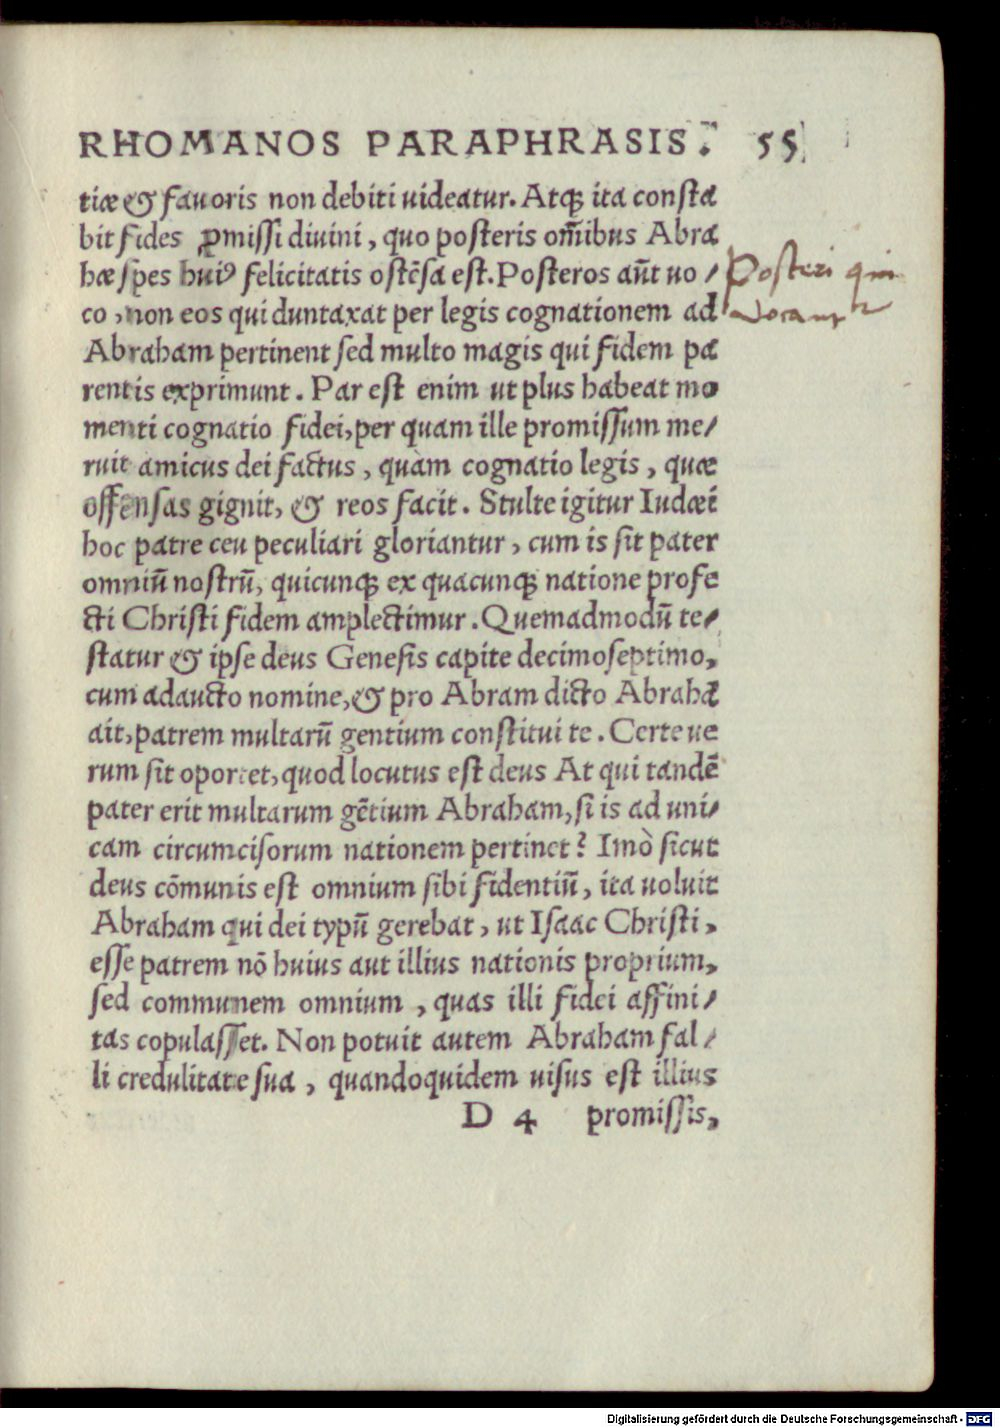 RHOMANOS PARAPHRASIS. 55
tiæ & favoris non debiti uideatur. Atqꝫ ita consta
bit fides ꝓmissi diuini, quo posteris om̄ibus Abra
hæ spes huiꝰ felicitatis ostēsa est. Posteros aūt uo/
co, non eos qui duntaxat per legis cognationem ad
Abraham pertinent sed multo magis qui fidem pa
rentis exprimunt. Par est enim ut plus habeat mo
menti cognatio fidei, per quam ille promissum me/
ruit amicus dei factus, quàm cognatio legis, quæ
offensas gignit, & reos facit. Stulte igitur Iudæi
hoc patre ceu peculiari gloriantur, cum is sit pater
omniū nostrū, quicunqꝫ ex quacunqꝫ natione profe
cti Christi fidem amplectimur. Quemadmodū te/
statur & ipse deus Genesis capite decimoseptimo,
cum adaucto nomine, & pro Abram dicto Abrahā
ait, patrem multarū gentium constitui te. Certe ue
rum sit oportet, quod locutus est deus At qui tandē
pater erit multarum gētium Abraham, si is ad uni/
cam circumcisorum nationem pertinet? Imò sicut
deus cōmunis est omnium sibi fidentiū, ita uoluit
Abraham qui dei typū gerebat, ut Isaac Christi,
esse patrem nō huius aut illius nationis proprium,
sed communem omnium, quas illi fidei affini/
tas copulasset. Non potuit autem Abraham fal/
li credulitate sua, quandoquidem uisus est illius
D 4 promissis,
Posteri qui
vocantur
Digitalisierung gefördert durch die Deutsche Forschungsgemeinschaft - DFG